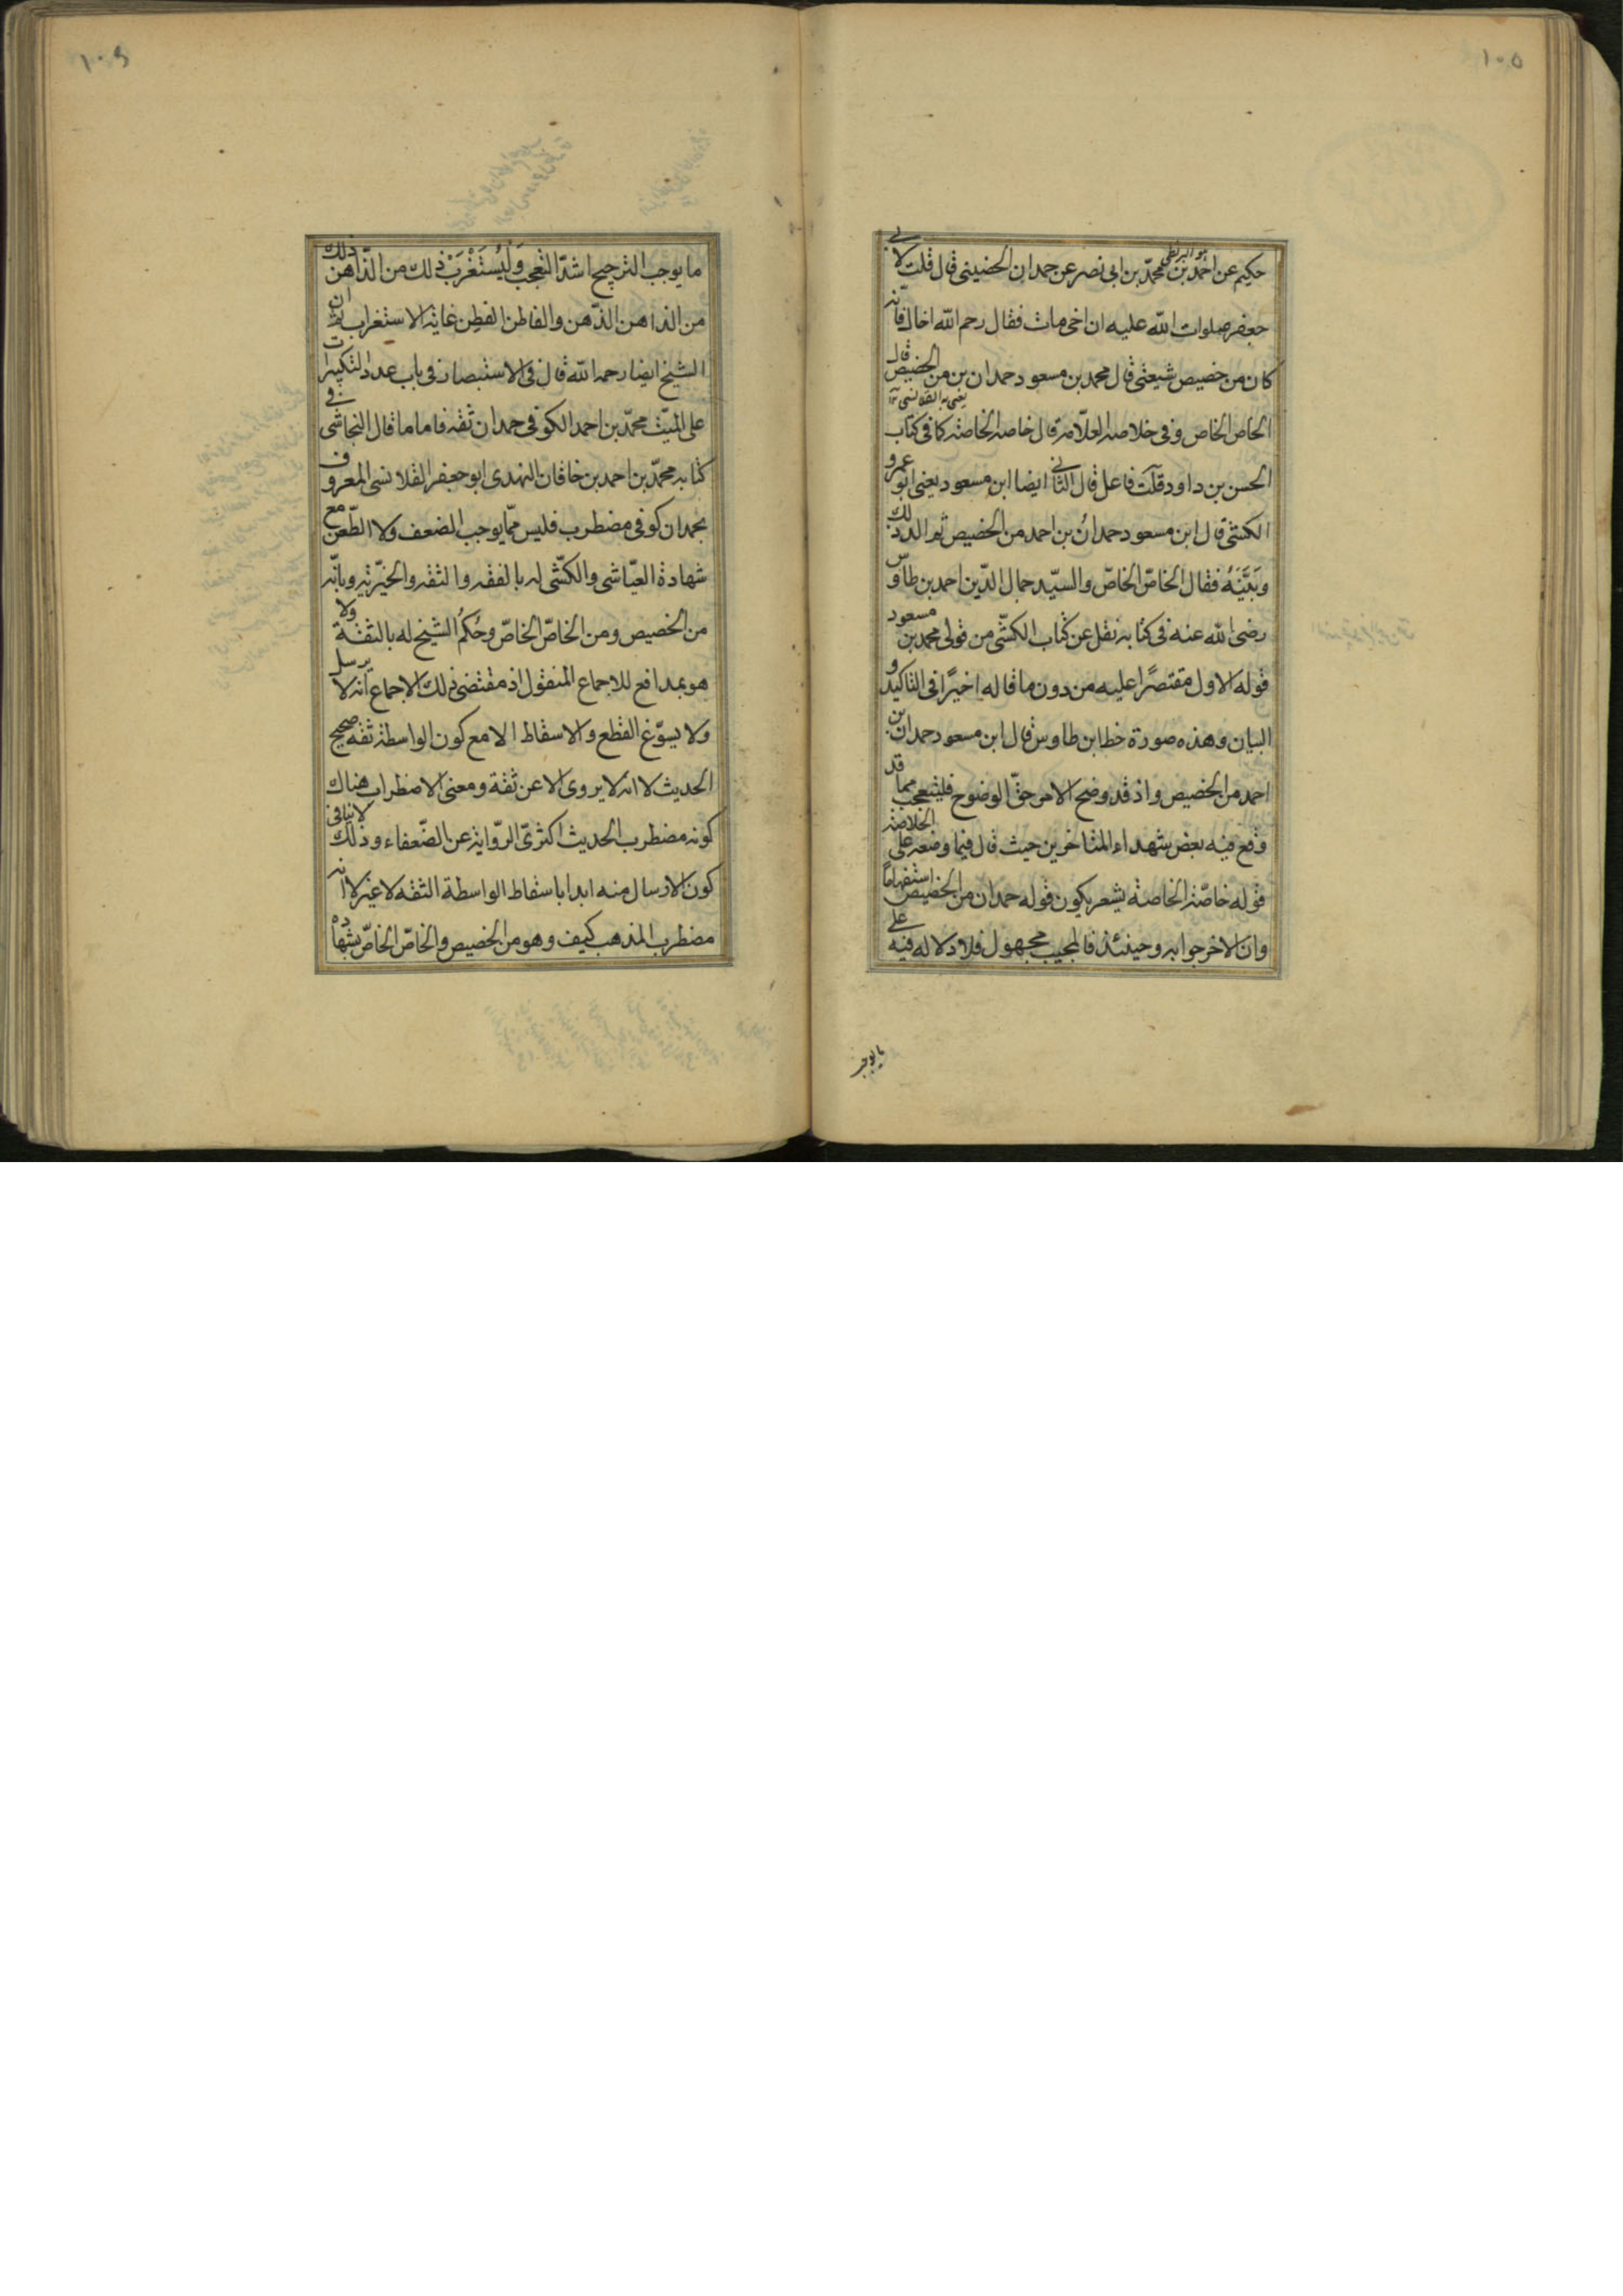 ١٠٥
حكيم عن احمد بن محمّد بن ابى نصر عن حمدان الحضينى قال قلت لابى
جعفر صلوات الله عليه ان اخى مات فقال رحم الله اخاك فانّه
كان من خصيص شيعتى قال محمد بن مسعود حمدان بن من الخصيص قال
الخاص الخاص وفى خلاصه العلّامه قال خاصه الخاصه كما فى كتاب
الحسن بن داود قلت فاعل قال الثانى ايضا ابن مسعود يعنى ابو عمرو
الكشى قال ابن مسعود حمدانُ بن احمد من الخصيص ثم
وبَيَّنَهُ فقال الخاصّ الخاصّ والسيّد جمال الدّين احمد بن طاوس
رضى الله عنه فى كتابه نقل عن كتاب الكشّى من قولى محمد بن مسعود
قوله الاول مقتصرًا عليه من دون ما قاله اخيرًا فى التاكيد و
البيان وهذه صورة خط ابن طاوس قال ابن مسعود حمدان بن
احمد من الخصيص واذ قد وضح الامر حقّ الوضوح فليتعجب مما قد
وقع فيه بعض شهداء المتاخرين حيث قال فيما وضعه على الخلاصة
قوله خاصّة الخاصة يشعر بكون قوله حمدان من الخصيص استفهاما
وان الاخر جوابه وحينئذ فالمجيب مجهول فلا دلاله فيه على
ما يوجب
١٠٦
ما يوجب الترجيح اشدّ التعجب وَلْيُسْتَغْرَبْ ذلك من الذّاهن
من الذاهن الذّهن والفاطن الفطِن غاية الاستغراب ثمّ ان
الشيخ ايضا رحمه الله قال فى الاستبصار فى باب عدد التكبيرات
على الميّت محمّد بن احمد الكوفى حمدان ثقه فاما ما قال النجاشى فى
كتابه محمّد بن احمد بن خاقان النهدى ابو جعفر القلانسى المعروف
بحمدان كوفى مضطرب فليس ممّا يوجب الضعف ولا الطّعن مع
شهادة العيّاشى والكشّى له بالفقه والثقه والخيّريّه وبانّه
من الخصيص ومن الخاصّ الخاصّ وحُكمُ الشيخ له بالثقة ولا
هو بمدافع للاجماع المنقول اذ مقتضى ذلك الاجماع انه لا يرسل
ولا يسوّغ القطع والاسقاط الا مع كون الواسطة ثقه صحيح
الحديث لا انه لا يروى الا عن ثقة ومعنى الاضطراب هناك
كونه مضطرب الحديث اكثرىّ الرّواية عن الضّعفاء وذلك لا ينافى
كون الارسال منه ابدا باسقاط الواسطة الثقه لا غير لا انه
مضطرب المذهب كيف وهو من الخصيص والخاصّ الخاصّ بشهادة